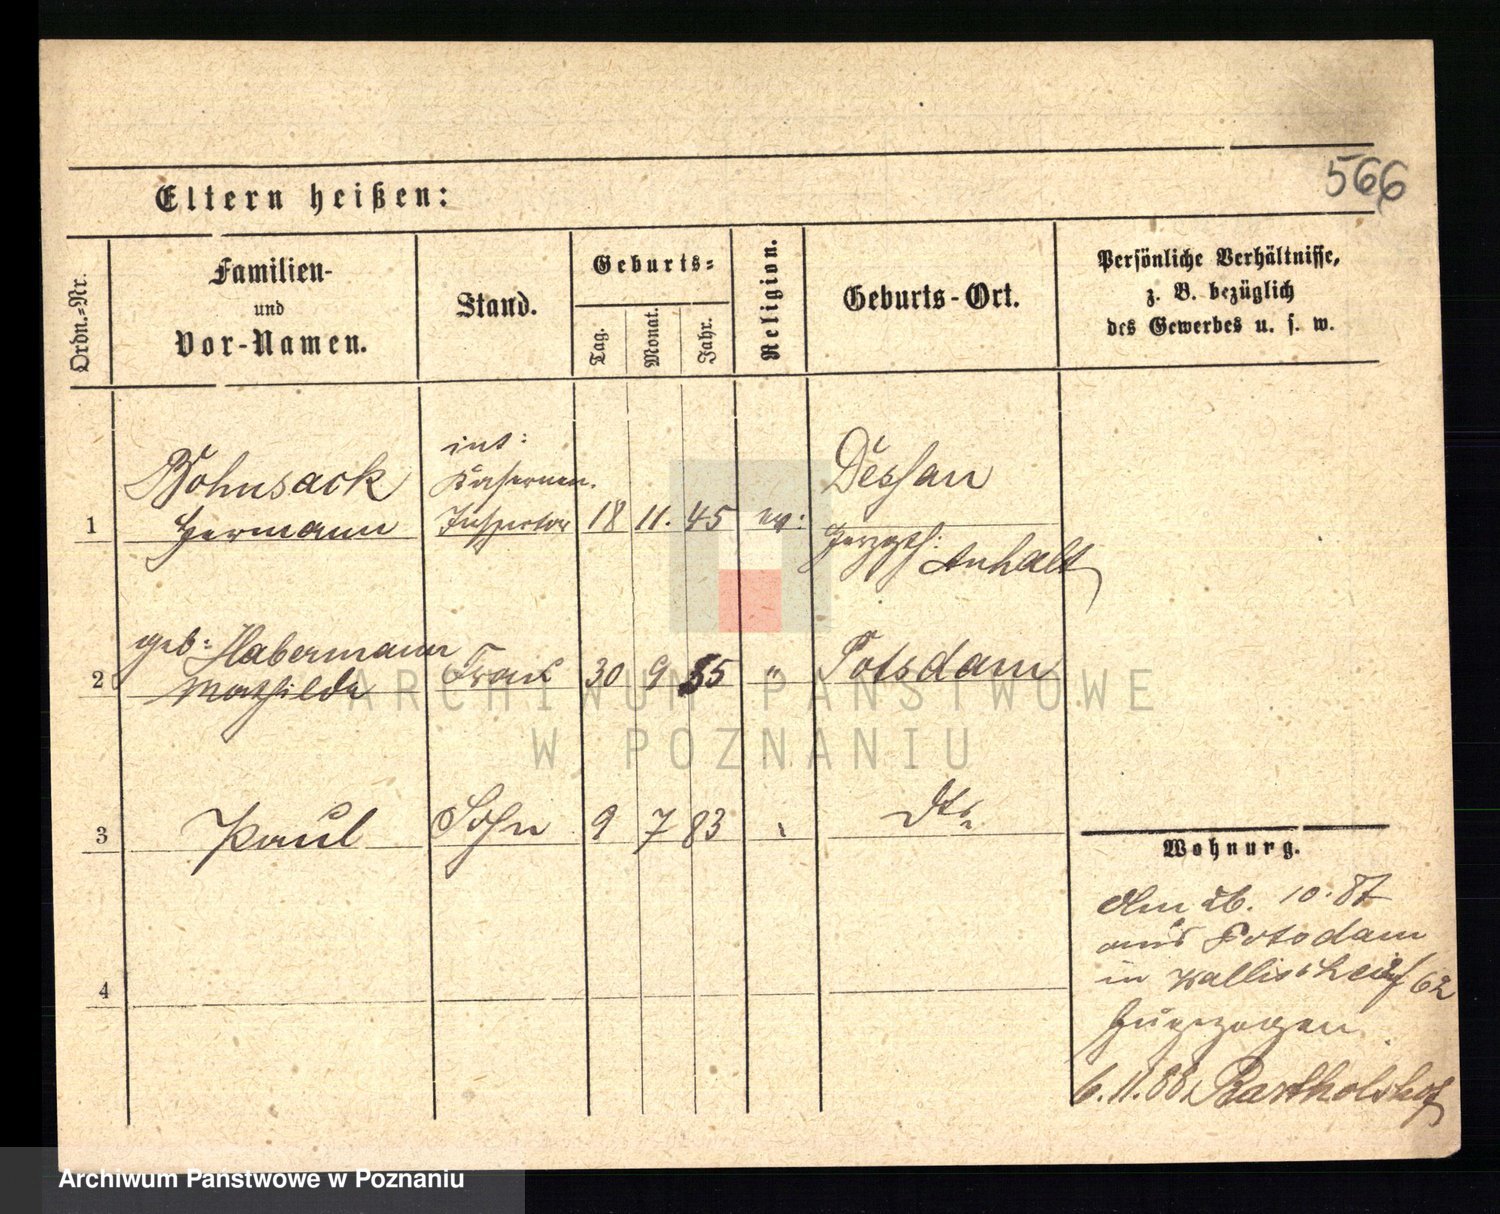 566
Eltern heißen:
Ordn.-Nr.
Familien-
und
Vor-Namen.
Stand.
Geburts-
Tag.
Monat.
Jahr.
Religion.
Geburts-Ort.
Persönliche Verhältnisse,
z. B. bezüglich
des Gewerbes u. s. w.
1
Bohnsack
Hermann
int:
Kasernen.
Inspector
18 11. 45 ev:
Dessau
Herzgth:
Anhalt
2
geb: Habermann
Mathilde
Frau 30 9 55 "
Potsdam
3 Paul Sohn 9 7 83
dto
4
Wohnung.
Am 26. 10. 87
aus Potsdam
in Wallischei 62
Zugezogen
6.11.88 Bartholdshof
ARCHIWUM PAŃSTWOWE
W POZNANIU
Archiwum Państwowe w Poznaniu